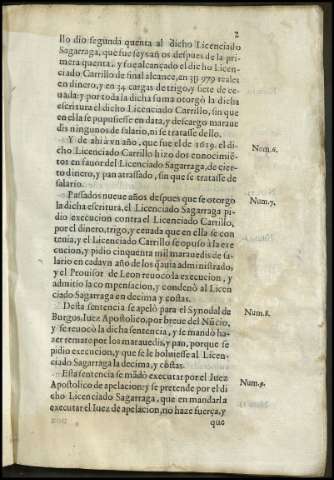 2
llo dio segunda quenta al dicho Licenciado
Sagarraga, que fue seys años despues de la pri-
mera quenta, y fue alcançado el dicho Licen-
ciado Carrillo de final alcance, en 3U 979 reales
en dinero, y en 34 cargas de trigo, y siete de ce-
uada: y por toda la dicha suma otorgò la dicha
escritura el dicho Licenciado Carrillo, sin que
en ella se pupusiesse en data, y descargo maraue
dis ningunos de salario, ni se tratasse dello.
Y de ahi à vn año, que fue el de 1639. el di-
cho Licenciado Carrillo hizo dos conocimiẽ-
tos en fauor del Licenciado Sagarraga, de cier-
to dinero, y pan atrassado, sin que se tratasse de
salario.
Num. 6.
Passados nueue años despues que se otorgo
la dicha escritura, el Licenciado Sagarraga pi-
dio execucion contra el Licenciado Carrillo,
por el dinero, trigo, y ceuada que en ella se con
tenia, y el Licenciado Carrillo se opuso à la exe
cucion, y pidio cinquenta mil marauedis de sa-
lario en cada vn año de los q̃ auia administrado,
y el Prouisor de Leon reuocò la execucion, y
admitio la compensacion, y condenò al Licen
ciado Sagarraga en decima y costas.
Num. 7.
Desta sentencia se apelò para el Synodal de
Burgos, Iuez Apostolico, por breue del Nũcio,
y se reuocò la dicha sentencia, y se mandò ha-
zer remate por los marauedis, y pan, porque se
pidio execucion, y que se le boluiesse al Licen-
ciado Sagarraga la decima, y costas.
Num. 8.
Esta sentencia se mãdò executar por el Iuez
Apostolico de apelacion: y se pretende por el di
cho Licenciado Sagarraga, que en mandarla
executar el Iuez de apelacion, no haze fuerça, y
Num. 9.
que